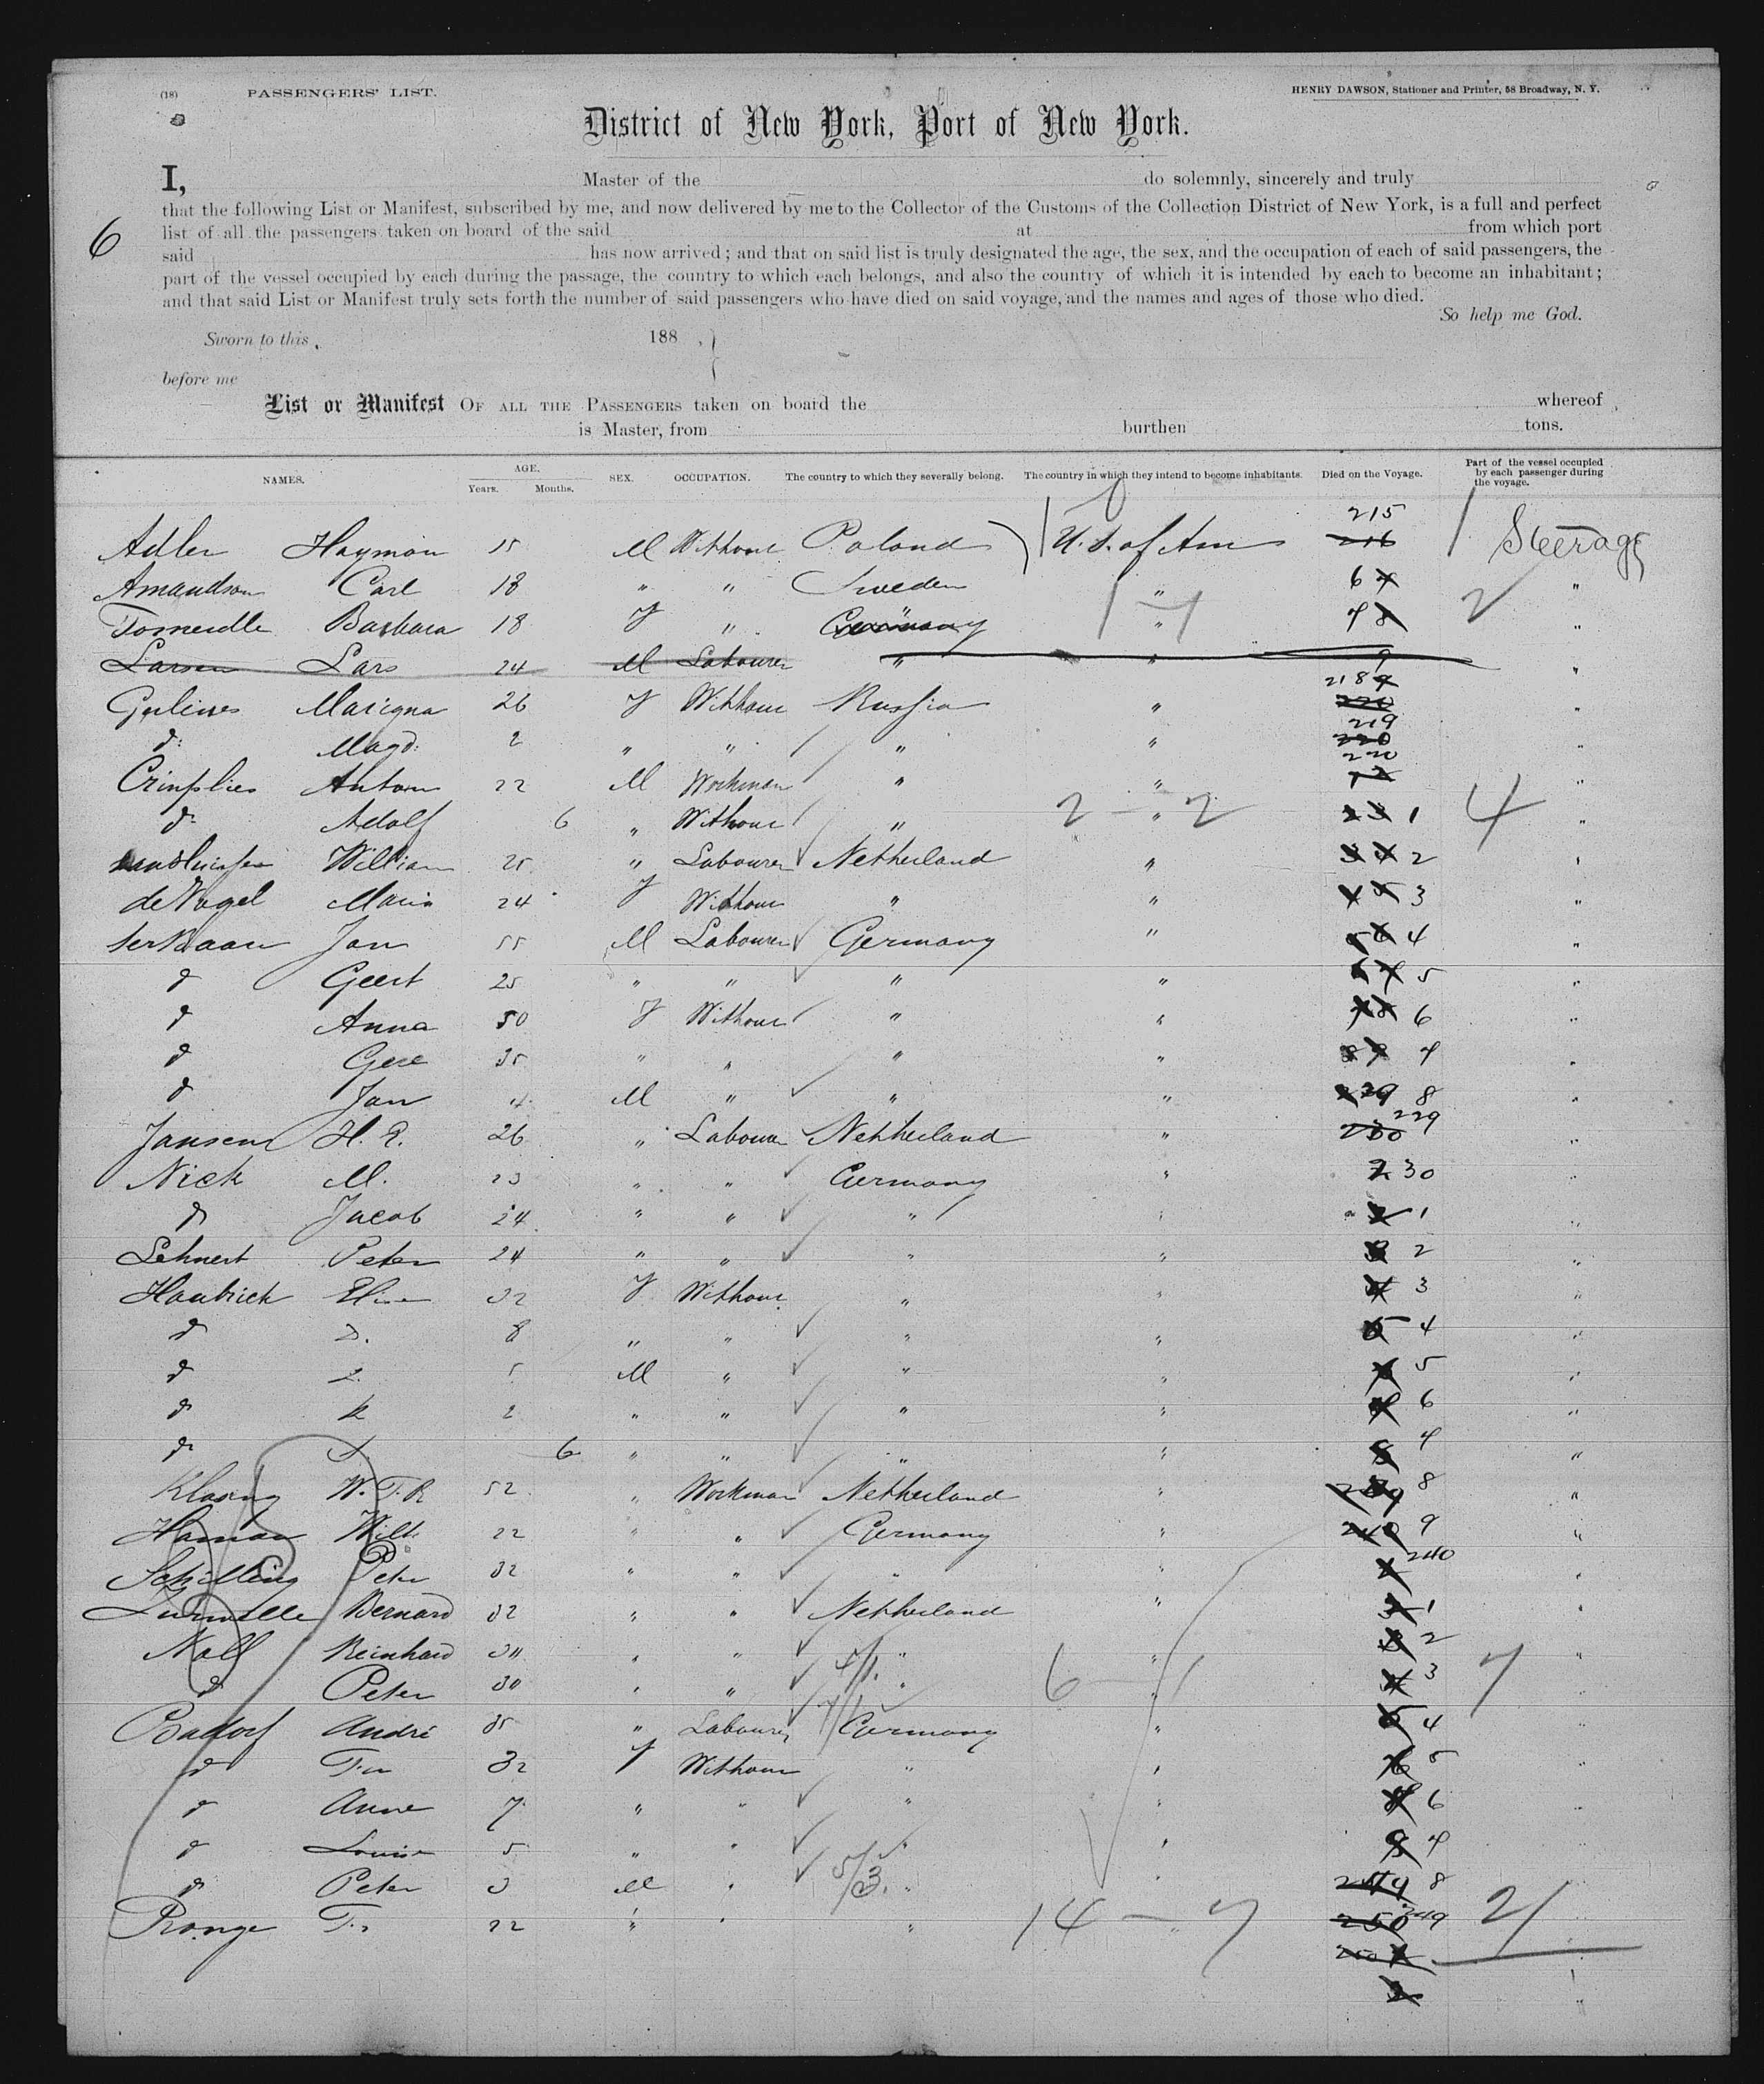 (18) PASSENGERS' LIST. HENRY DAWSON, Stationer and Printer, 58 Broadway, N. Y.
District of New York, Port of New York.
I, Master of the do solemnly, sincerely and truly
that the following List or Manifest, subscribed by me, and now delivered by me to the Collector of the Customs of the Collection District of New York, is a full and perfect
6
list of all the passengers taken on board of the said at from which port
said has now arrived; and that on said list is truly designated the age, the sex, and the occupation of each of said passengers, the
part of the vessel occupied by each during the passage, the country to which each belongs, and also the country of which it is intended by each to become an inhabitant;
and that said List or Manifest truly sets forth the number of said passengers who have died on said voyage, and the names and ages of those who died.
So help me God.
Sworn to this 188
before me
List or Manifest OF ALL THE PASSENGERS taken on board the whereof
is Master, from burthen tons.
NAMES. AGE. Years. Months. SEX. OCCUPATION. The country to which they severally belong. The country in which they intend to become inhabitants. Died on the Voyage. Part of the vessel occupied by each passenger during the voyage.
215
Adler Haymon 15 M Without Poland U. S. of Am 216 Steerage
Amandson Carl 18 " " Sweden " 6 7 2 "
Barbara 18 F " Germany " 7 8 "
Larsen Lars 24 M Labourer " " 9 "
Marigna 26 F Without Russia " 218 "
d: Magd: 2 " " " " 219 220 "
Anton 22 M Workman " " 220 "
d: Adolf 6 " Without " 2 - 2 1 4 "
William 25 " Labourer Netherland " 2 "
de Vogel Maria 24 F Without " " 3 "
ter Haan Jan 55 M Labourer Germany " 4 "
d Geert 25 " " " " 5 "
d Anna 50 F Without " " 6 "
d Gese 35 " " " " 7 "
d Jan 4 M " " " 8 "
Jansen H. E. 26 " Labourer Netherland " 230 229 "
Nick M. 23 " " Germany " 230 "
d Jacob 24 " " " " 1 "
Lehnert Peter 24 " " " " 2 "
Haubrich Elise 32 F Without " " 3 "
d D. 8 " " " " 4 "
d L. 5 M " " " 5 "
d K 2 " " " " 6 "
d 6 " " " " 7 "
Klasing W. T. R 52 " Workman Netherland " 8 "
Haman Wilh 22 " " Germany " 240 9 "
Schilling Peter 32 " " " " 240 "
Bernard 32 " " Netherland " 1 "
Noll Reinhard 34 " " " " 2 "
d Peter 30 " " " 6 - 1 3 7 "
Badorf André 35 " Labourer Germany " 4 "
d 32 F Without " " 5 "
d Anna 7 " " " " 6 "
d Louise 5 " " " " 7 "
d Peter 3 M " 5/3. " " 8 "
Ronge Fr 22 " " " 14 - 7 250 249 21 "